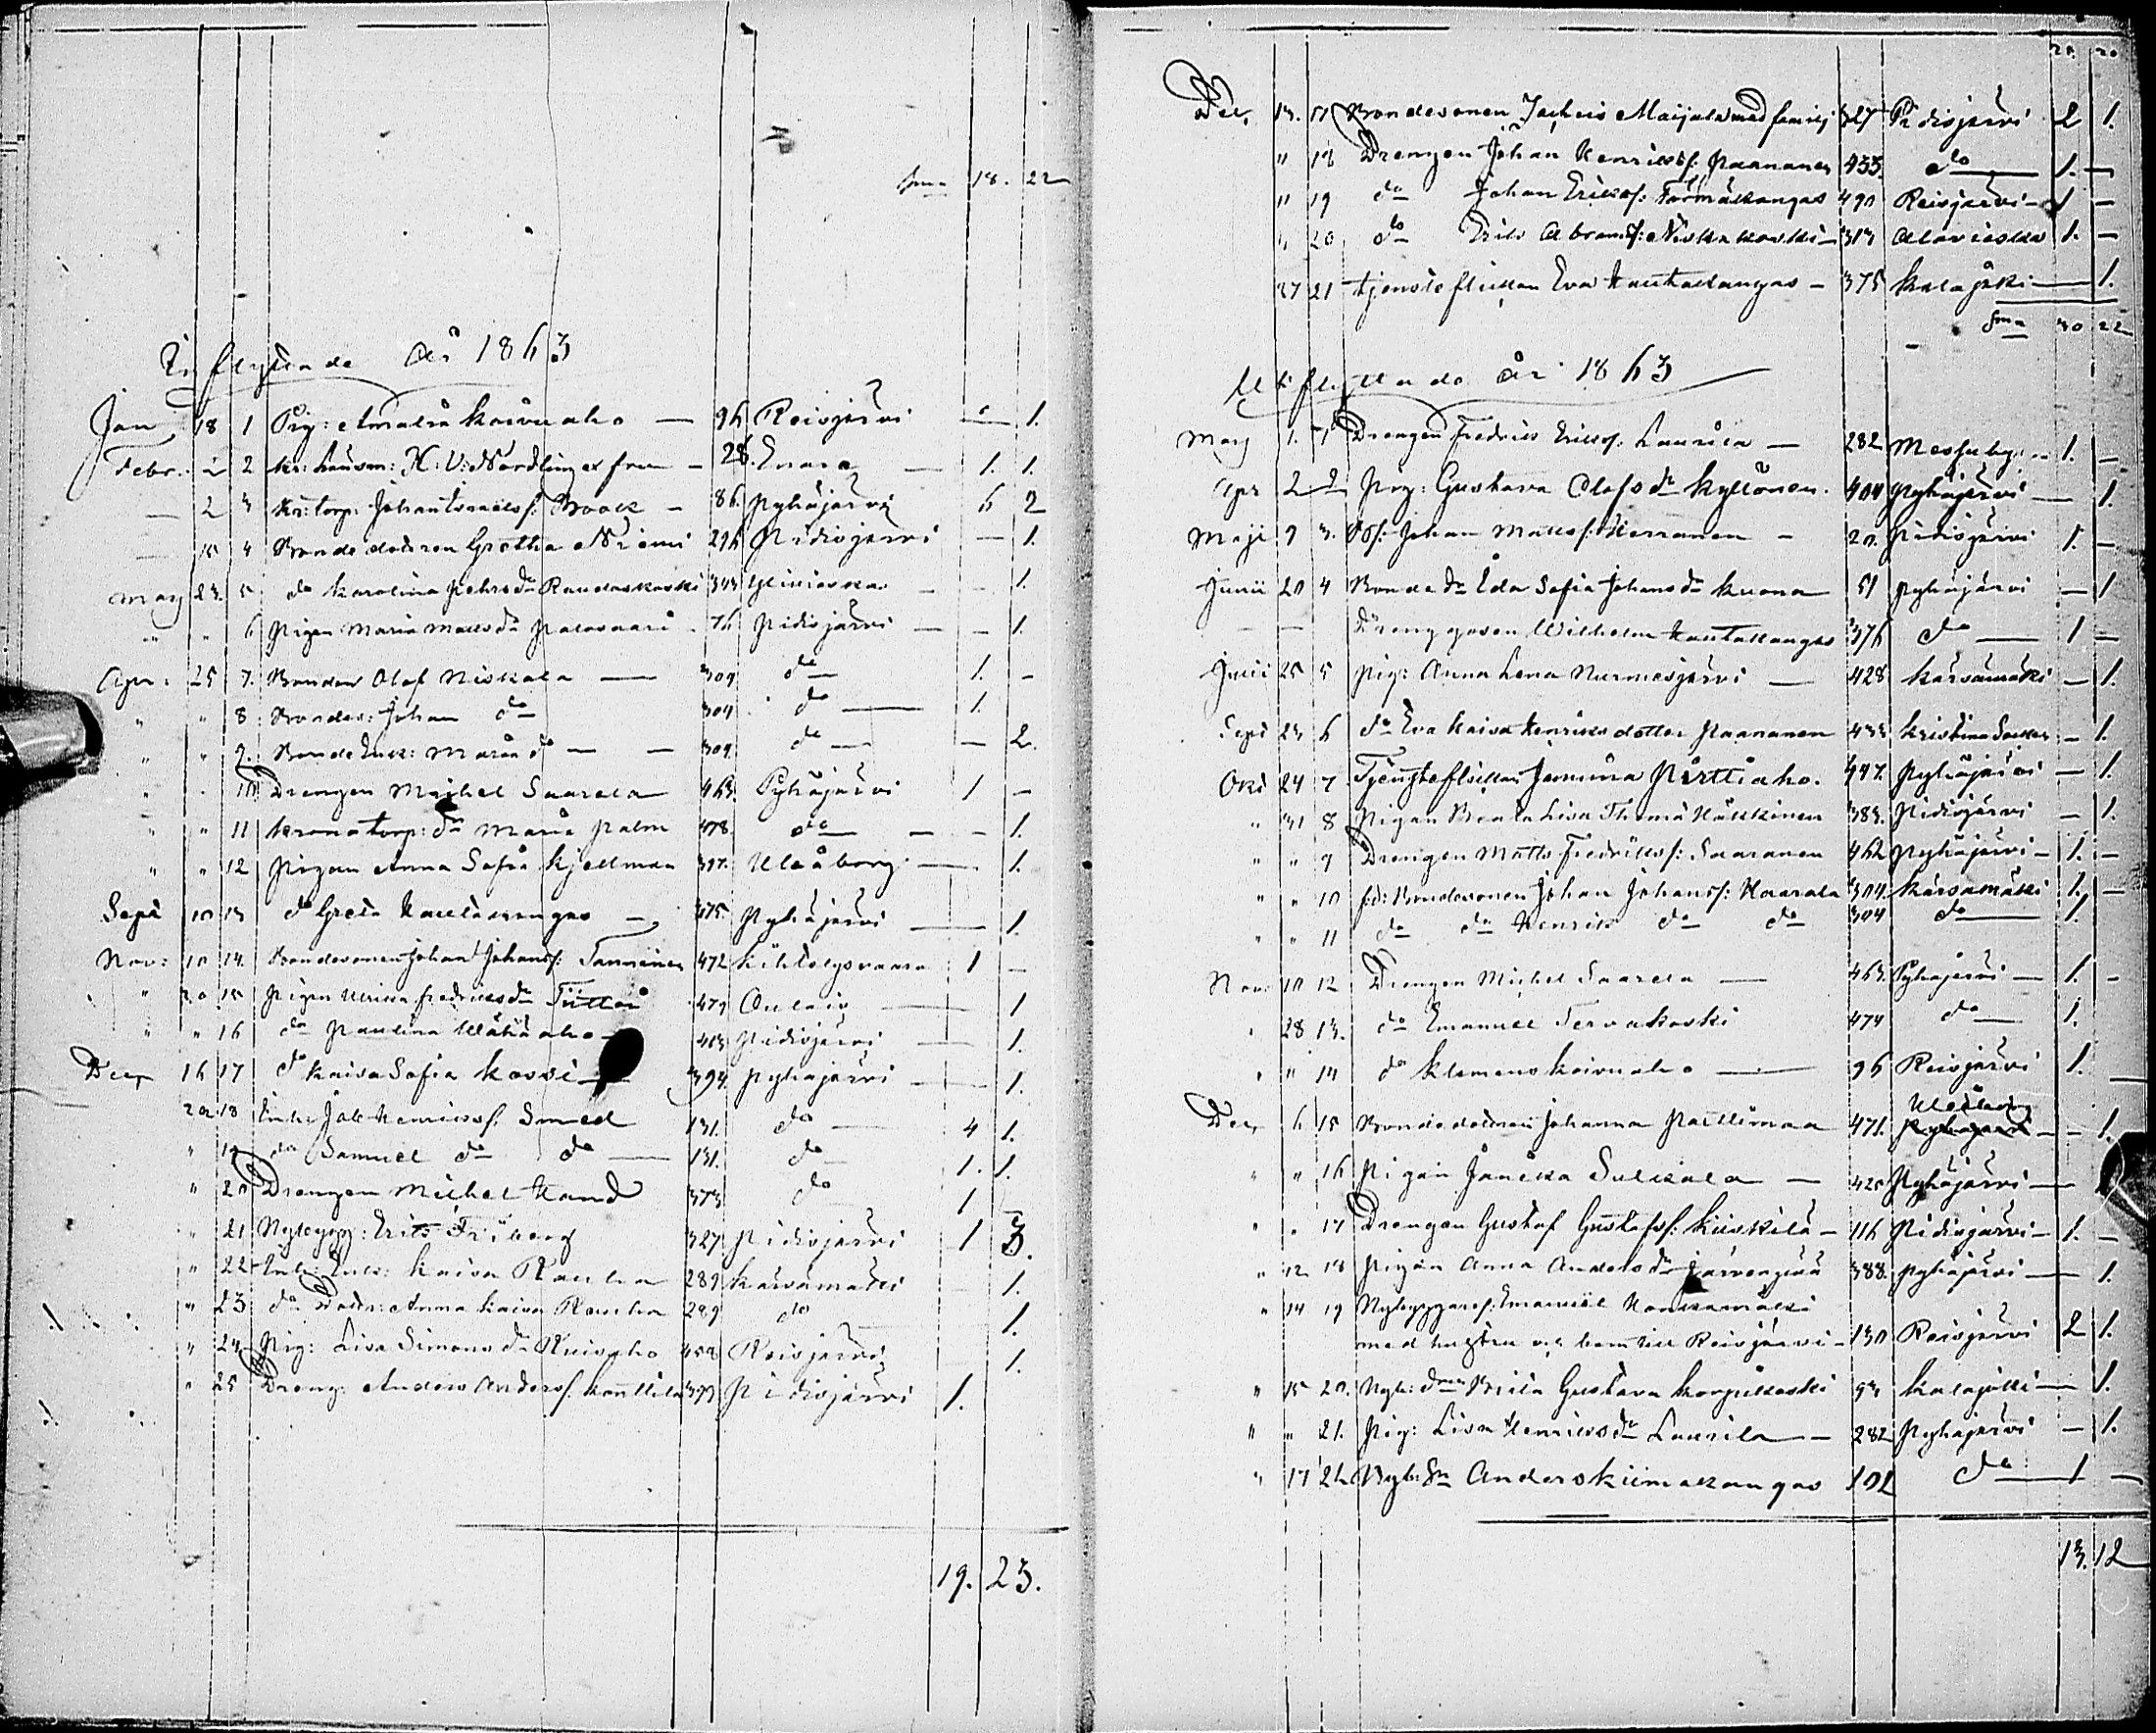 Sma 18. 22
Inflyttande år 1863
Jan 18 1 Pig: Amalia Koivuaho — 96 Reisjärvi — 1.
Febr. 2 2 Kr: Länsm: K: V: Nordling ex fru — 28. Enara — 1. 1.
— 2 3 Kr: torp: Johan Israelss: Brock — 86. Pyhäjärvi 6 2
— 15 4 Bonde dottren Gretha Niemi 296 Pidisjärvi — 1.
Mars 23. 5 do Karolina Pehrsdr Raudaskoski 343 Ylivieska — 1.
" " 6 Pigan Maria Mattsdr Palovaari 76 Pidisjärvi — 1.
Apr: 25 7. Bonden Olof Niskala — 309 do — 1. —
" " 8 Bondes: Johan do 309 do — 1.
" " 9. Bonde Enk: Maria do — 309. do — 2.
" " 10. Drengen Michel Saarela 463. Pyhäjärvi 1 —
" " 11 Krono torp: dr Maria Palm 478. do — 1.
" " 12 Pigan Anna Sofia Kjellman 397. Uleåborg — 1.
Sept 10 13 do Greta Kautakangas — 375. Pyhäjärvi — 1.
Nov: 10 14. Bondesonen Johan Johanss: Tanninen 472 Kihtelysvaara 1 —
" 20 15 Pigan Ulrika Fredriksdr Tiitto 479 Oulais — 1
" " 16 do Paulina Wähäaho 413 Pidisjärvi — 1.
Decr 16 17 do Kaisa Sofia Kossi 394. Pyhäjärvi — 1.
20 18 Inh: Jak Henrikss: Smed 131. do — 4 1.
" 19 do Samuel do do — 131. do — 1. 1.
" 20 Drengen Michel Hand 373 do 1
" 21 Nybygg: Erik Friberg 327 Pidisjärvi 1 3.
" 22 Inh: Enk: Kaisa Rauha 289 Kärsämäki 1.
" 23 do Dottr: Anna Kaisa Rauha 289 do 1.
" 24 Pig: Lisa Simonsdr Ruisaho 458 Reisjärvi 1.
" 25 Dreng: Anders Anderss: Knuttila 377 Pidisjärvi 1.
19. 23.
20. 20
Dec, 13. 17 Bondesonen Zacheis Maijala med familj 327 Pidisjärvi 2 1.
" 18 Drengen Johan Henrikss: Paananen 433. do — 1. —
" 19 do Johan Erikss: Törmäkangas 490 Reisjärvi — 1 —
" 20 do Erik Abramss: Niskakoski — 313 Alavieska 1. —
27 21 tjensteflickan Eva Kautakangas — 375 Kalajoki — 1.
Sma 30 22
Utflyttande år 1863
Mars 1. 1 Drengen Fredrik Erikss: Laurila — 282 Messuby — 1. —
Apr 2 2 Pig: Gustava Olofsdr Kyllönen. 404 Pyhäjärvi — 1.
Maji 9 3. Bs: Johan Matss: Herranen — 20. Pidisjärvi 1. —
Junii 20 4 Bondedr Eda Sofia Johansdr Kuona 51 Pyhäjärvi — 1
— — Dreng gosen Wilhelm Kautakangas 376 do — 1 —
Junii 25 5 Pig: Anna Lena Nurmesjärvi — 428 Kärsämäki — 1.
Sept 23 6 do Eva Kaisa Henriksdotter Paananen 433 Kristina — 1.
Okt 24 7. Tjensteflickan Jemina Pirttiaho. 447. Pyhäjärvi — 1.
" 31 8 Pigan Beata Lisa Thoma Häkkinen 383. Pidisjärvi — 1.
" " 9 Drengen Matts Fredrikss: Saaranen 462 Pyhäjärvi — 1. —
" " 10 fd: Bondesonen Johan Johanss: Haarala 304. Kärsämäki 1. —
" " 11 do do Henrik do do 304 do — 1.
Nov: 10 12 Drengen Michel Saarela — 463. Pyhäjärvi — 1. —
" 28 13. do Emanuel Tervakoski 474 do — 1.
" " 14 do Klemens Koivuaho — 96 Reisjärvi 1. —
Dec, 6 15 Bonde dottren Johanna Pallimaa 471. Uleåborg — 1.
" " 16 Pigan Janicka Sulkala — 425 Pyhäjärvi —
" " 17 Drengen Gustaf Gustafss: Kiiskilä — 116 Pidisjärvi — 1. —
" 12 18 Pigan Anna Andersdr Järvenpää 388. Pyhäjärvi — 1.
" 14 19 Nybyggares: Emanuel Honkamäki
med hustru och barn till Reisjärvi — 130 Reisjärvi 2 1.
" 15 20. Nyb: dr Brita Gustava Korpikoski 93 Kalajoki — 1.
" " 21. Pig: Lisa Henriksdr Laurila — 282 Pyhäjärvi — 1.
" 17 22 Nyb: Sn Anders Kiimakangas 102 do — 1 —
13. 12